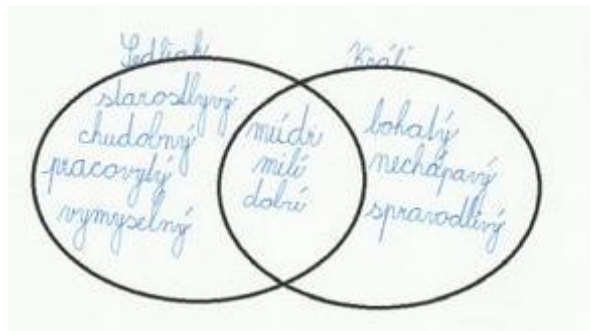 Sedliaki
Králi
starostlyvý
chudobný
pracovytý
vymyselný
múdri
milí
dobrí
bohatý
nechápavý
spravodlivý